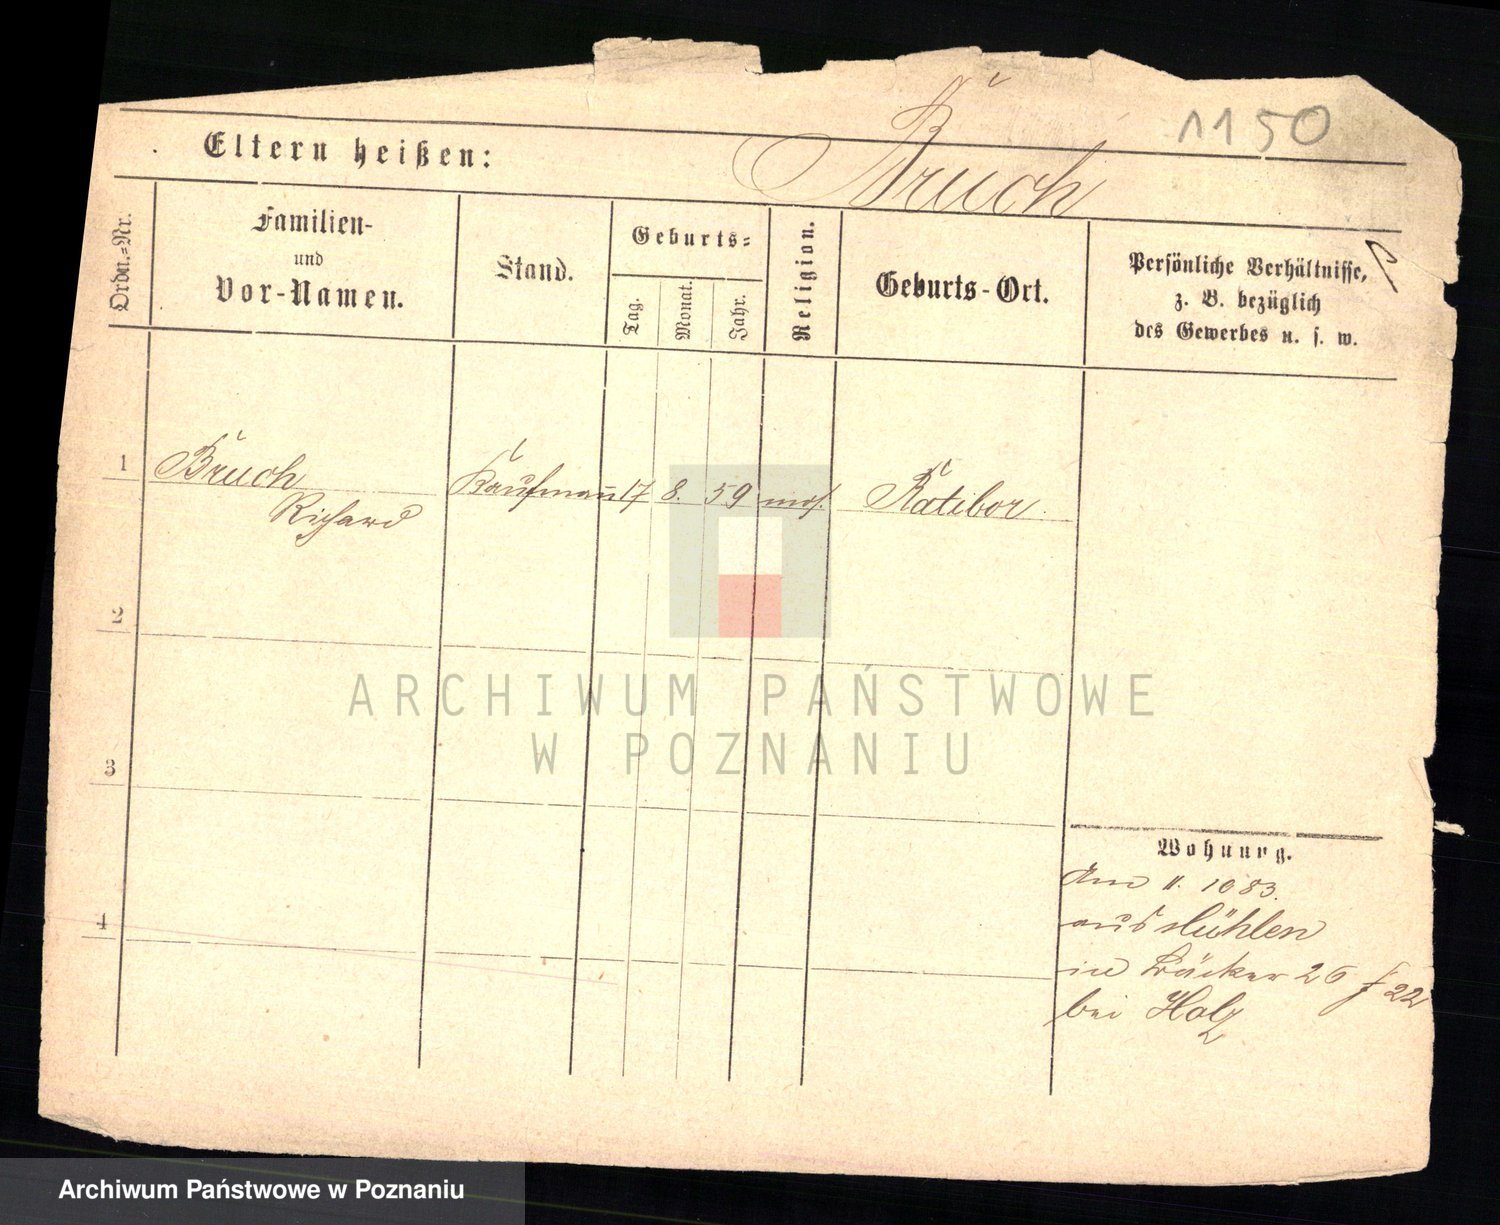 1150
Bruch
Eltern heißen:
Ordn.-Nr.
Familien-
und
Vor-Namen.
Stand.
Geburts-
Tag.
Monat.
Jahr.
Religion.
Geburts-Ort.
Persönliche Verhältnisse,
z. B. bezüglich
des Gewerbes u. s. w.
1 Bruch Kaufmann 17 8. 59 mos. Ratibor
Richard
2
3
4
ARCHIWUM PAŃSTWOWE
W POZNANIU
Wohnung.
11. 10 83.
aus Mühlen
in Bäcker 26 f 22
bei Holz
Archiwum Państwowe w Poznaniu